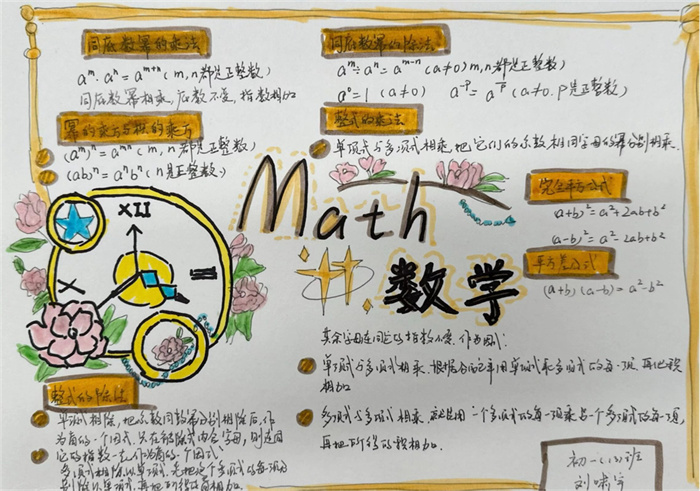 同底数幂的乘法
aᵐ·aⁿ=aᵐ⁺ⁿ(m,n都是正整数)
同底数幂相乘,底数不变,指数相加
幂的乘方与积的乘方
(aᵐ)ⁿ=aᵐⁿ(m,n都是正整数)
(ab)ⁿ=aⁿbⁿ(n是正整数)
同底数幂的除法
aᵐ÷aⁿ=aᵐ⁻ⁿ(a≠0)m,n都是正整数)
a⁰=1(a≠0)
整式的乘法
单项式与多项式相乘,把它们的系数相同字母的幂分别相乘.
Math
数学
XII
III
X
完全平方公式
(a+b)²=a²+2ab+b²
(a-b)²=a²-2ab+b²
平方差公式
(a+b)(a-b)=a²-b²
其余字母连同它的指数不变,作为因式.
单项式与多项式相乘.根据分配率用单项式乘多项式的每一项,再把积
相加
多项式与多项式相乘.先用一个多项式的每一项乘另一个多项式的每一项,
再把所得的积相加.
整式的除法
单项式相除,把系数同底数幂分别相除后,作
为商的一个因式.只在被除式内含字母,则连同
它的指数一起作为商的一个因式.
多项式相除以单项式.先把这个多项式的每一项分
别除以单项式,再把所得的商相加.
初一(12)班
刘啸宇